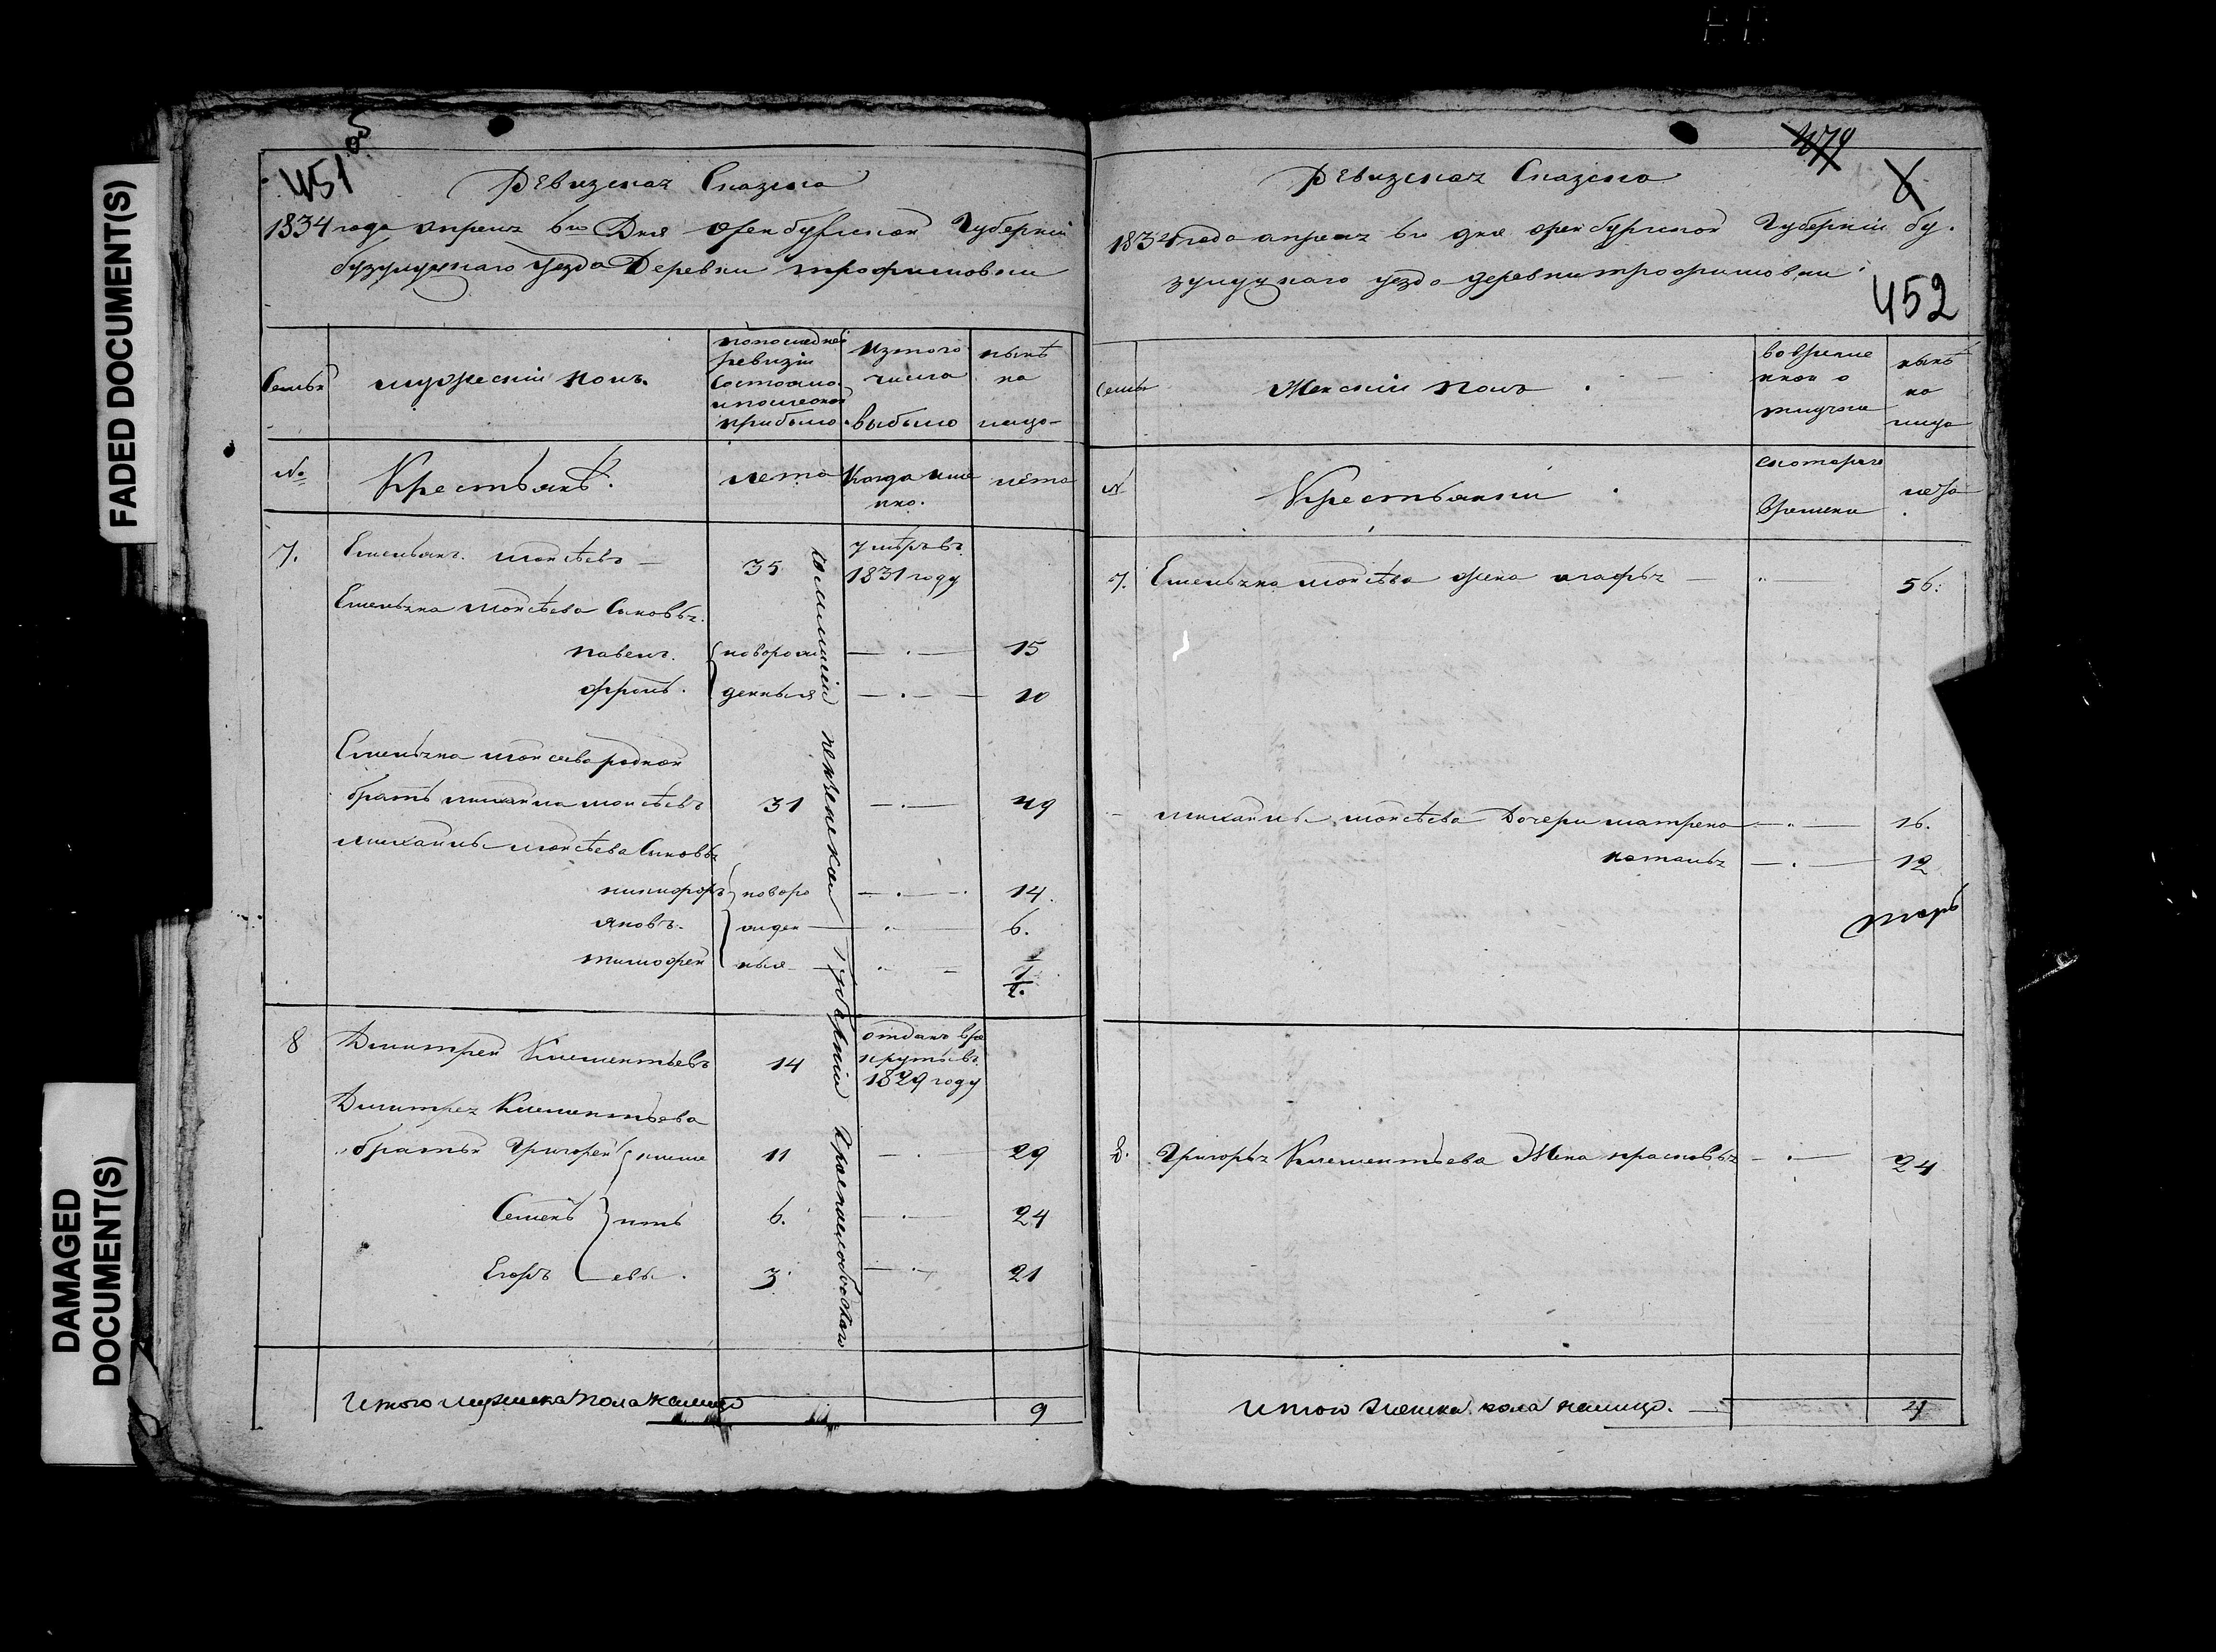 FADED DOCUMENT(S)
DAMAGED DOCUMENT(S)
451 об
Ревизская Сказка
1834 года апреля 6го Дня оренбургской Губернии
бузулуцкаго уезда Деревни трофимовки
Семьи
мужеский полъ.
по последней
ревизiи
состояло
и после оной
прибыло
изтого
числа
выбыло
нынѣ
на
лицо
№
Крестьянѣ.
лета
Когда име
нно.
лѣта
7.
Емельянъ моисѣевъ
35
умѣръ въ
1831 году
Емельяна моисѣева Сыновья.
павелъ. новорож — 15
денныя — 10
Емельяна моисева родной
братъ михайла моисѣевъ 31 — 49
михайлы моисѣева Сыновья
никифоръ новоро — 14.
яковъ. жден — 6.
тимофей ныя — 1/2.
8 Дмитрей Клементьевъ 14
отданъ вре
круты въ
1829 году
Дмитрея Клементьева
братья Григорей клеме 11 — 29
Семенъ нть 6. — 24
Егоръ евы. 3. — 21
Итого мужеска пола налицо 9
пензенской губернии Краснослободского
Ревизская Сказка
452
1834 года апреля 6го дня оренбургской Губернии бу.
зулуцкаго уезда деревни трофимовки
Семьи
Женский полъ
вовреме
нной о
тлучке
нынѣ
на
лицо
№
Крестьянки
скотораго
времени
лета
7. Емельяна моисѣева жена агафья — 56.
михайлы моисѣева Дочери матрена — 16.
наталья — 12
8. Григорья Клементьева Жена прасковья — 24
Итого женска пола налицо.